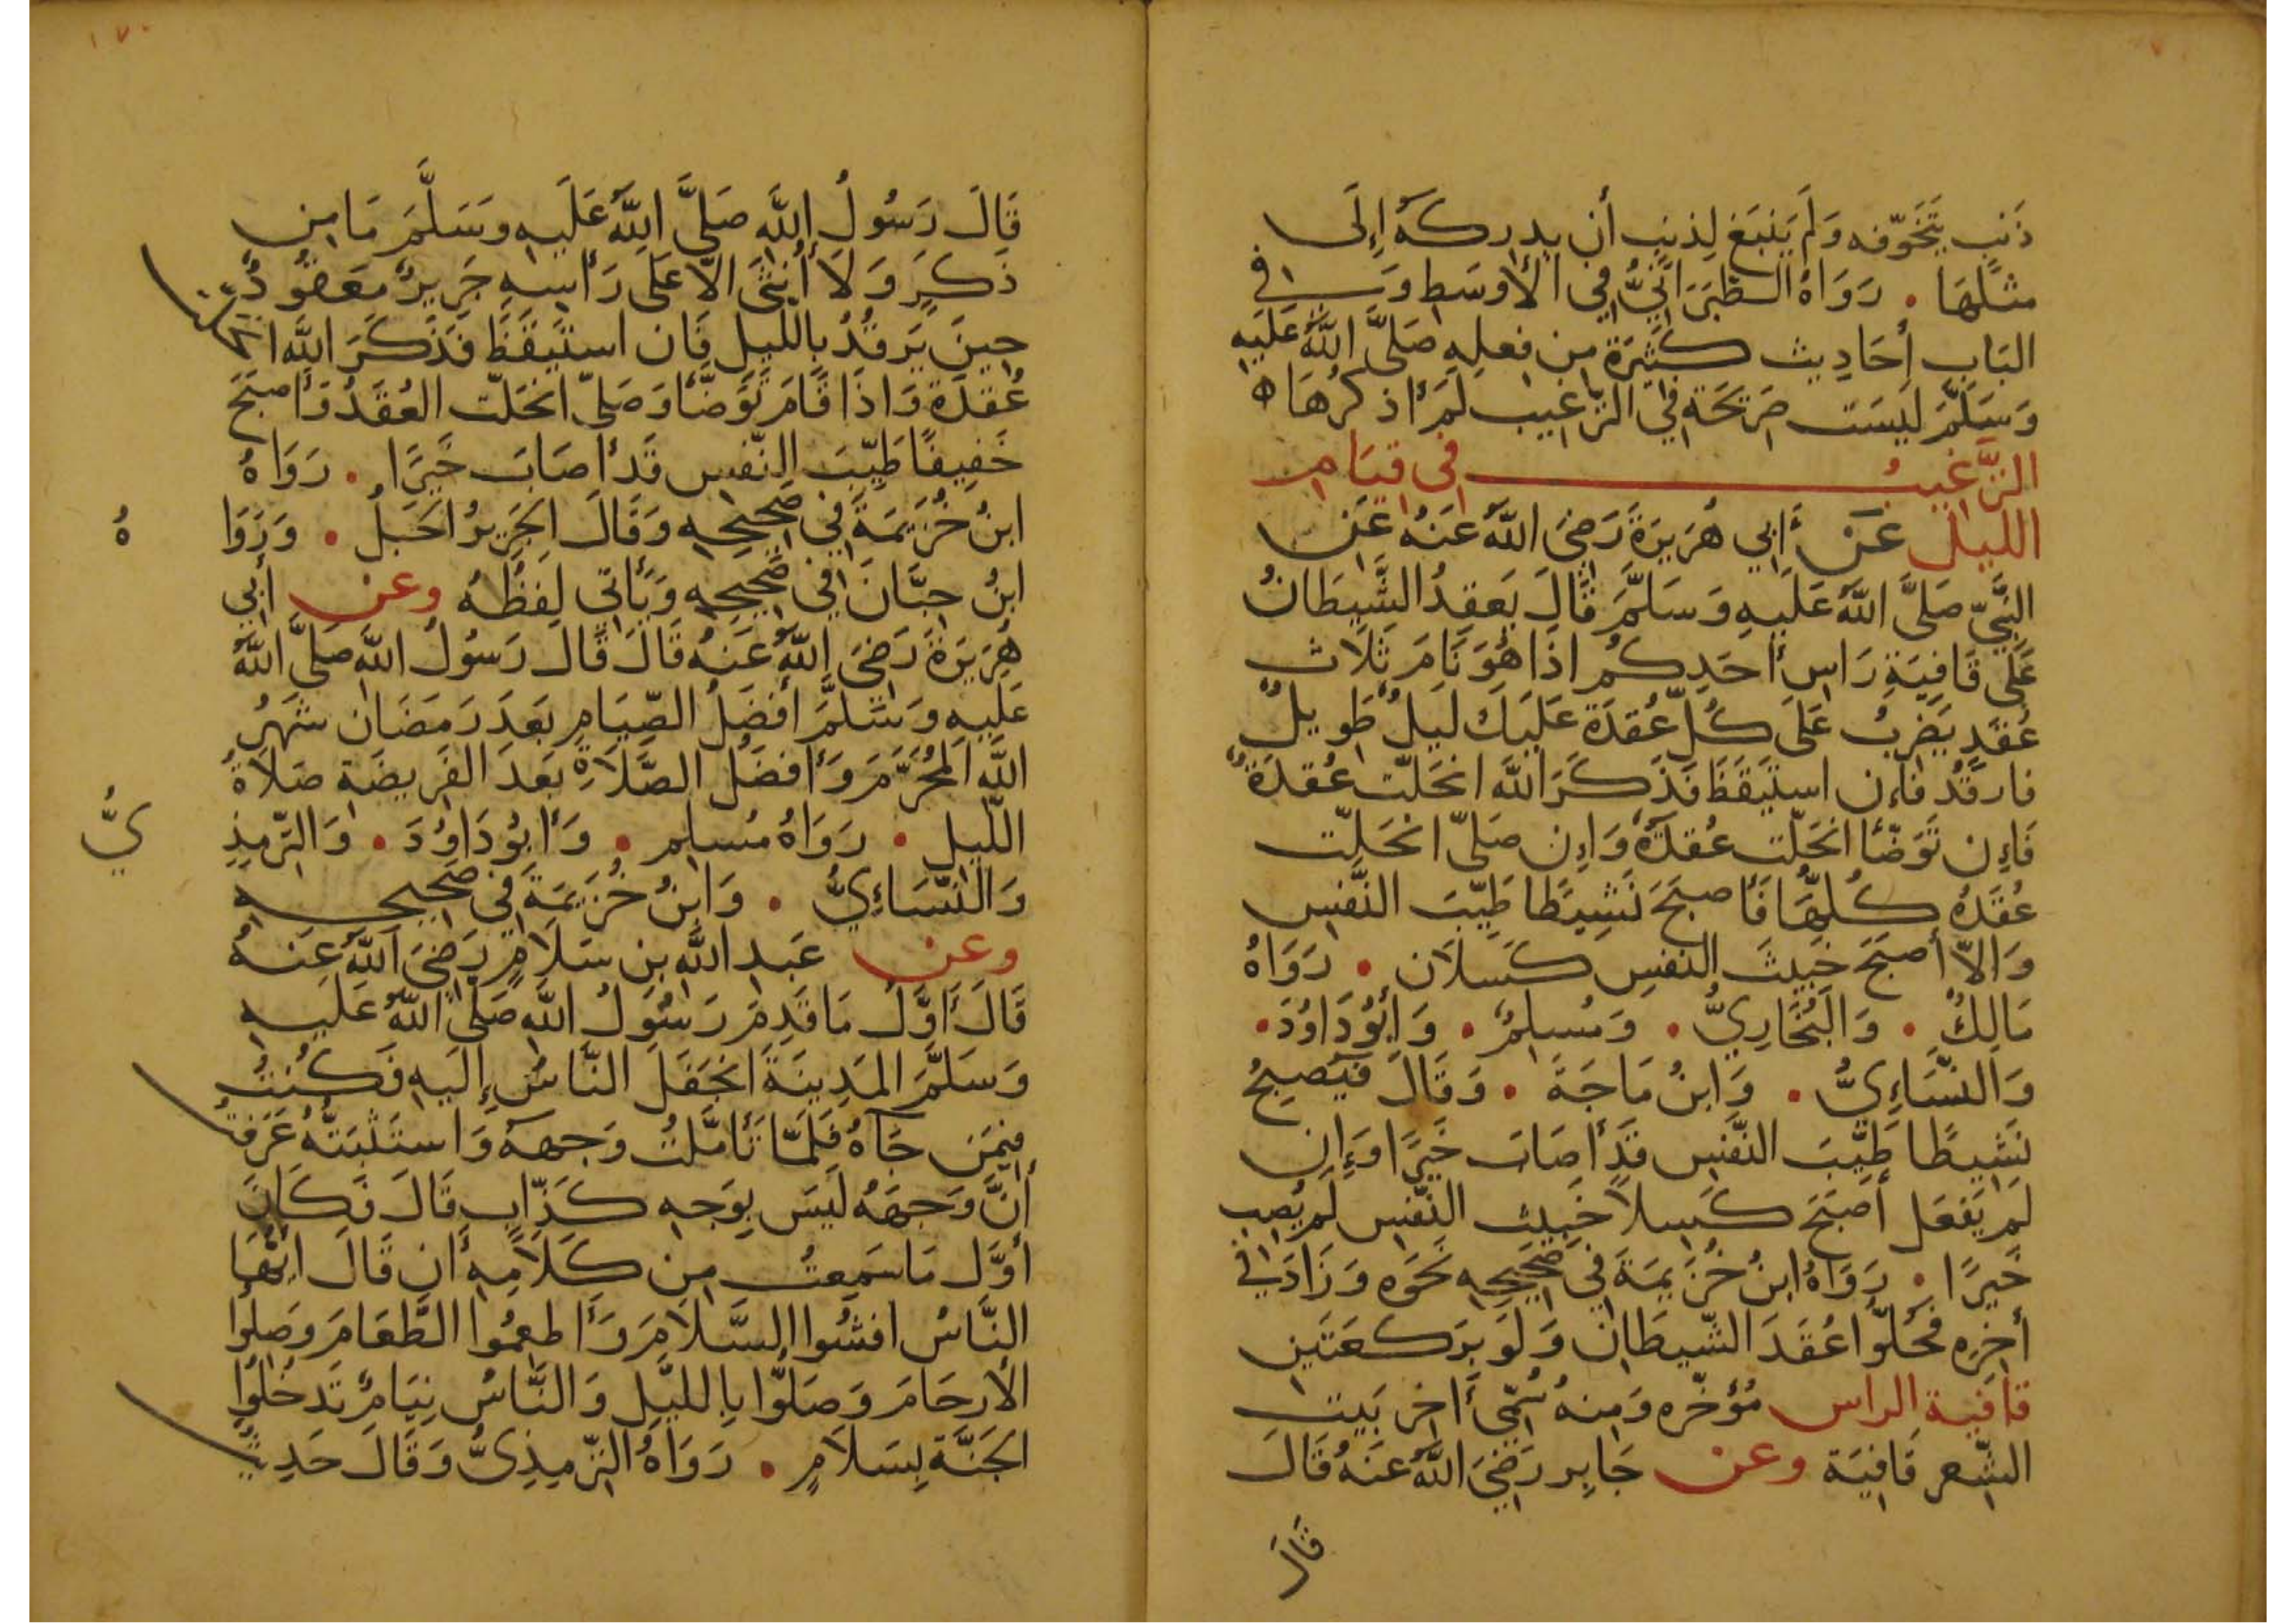 ذَنبٍ يَتَخَوَّفه وَلَم يَنبَغِ لِذنبٍ أن يدركهُ إلَى
مثلهَا . رَوَاهُ الطَّبَرَانيُّ فِي الأوسَط وَفي
البَاب أحَادِيث كَثيرَة مِن فِعلِهِ صَلَّى اللَّهُ عَلَيهِ
وَسَلَّمَ لَيسَت صَريحَة فِي التراغيب لَم أذكرهَا ه
الترَّغيبُ في قيَام
الليل عَنْ أَبي هُرَيرَةَ رَضيَ اللَّهُ عَنهُ عَن
النَّبيّ صَلَّى اللَّهُ عَلَيهِ وَسَلَّمَ قَالَ يَعقِدُ الشَّيطَانُ
عَلَى قَافِيَةِ رَاسِ أحَدِكُم اذَا هُوَ نَامَ ثَلاَث
عُقَدٍ يَضرِبُ عَلَى كُلِّ عُقدَة عَلَيكَ لَيلٌ طَويلٌ
فارقُد فَإن استَيقَظَ فَذَكَرَ اللَّهَ انحَلَّت عُقدَةٌ
فَإن تَوَضَّأ انحَلَّت عُقدَةٌ وَإن صَلَّى انحَلَّت
عُقَدُه كُلُّهَا فَأصبَحَ نَشِيطًا طَيِّبَ النَّفسِ
وَالاّ أصبَحَ خَبيثَ النفسِ كَسلاَن . رَوَاهُ
مَالِكٌ . وَالبُخَارِيُّ . وَمُسلِمٌ . وَأَبُو دَاوُدَ .
وَالنَّسَاءِيُّ . وَابنُ مَاجَةَ . وَقَالَ فَيُصبِحُ
نَشِيطًا طَيِّبَ النَّفسِ قَد أصَابَ خَيرًا وَإن
لَم يَفعَل أصبَحَ كَسِلاً خَبِيث النَّفسِ لَم يُصِب
خَيرًا . رَوَاهُ ابنُ خُزَيمَةَ فِي صَحِيحِهِ نَحوَه وَزَادَ فِي
أخِرِه فَحُلُّوا عُقَدَ الشَّيطَان وَلَو بِرَكعَتَينِ
قافية الراس مُؤخّره وَمِنهُ سُمِّيَ أَاخر بَيت
الشّعر قَافيَة وعن جَابِر رَضيَ اللَّهُ عَنهُ قَالَ
قَالَ
١٧٠
قَالَ رَسُولُ اللَّهِ صَلَّى اللَّهُ عَلَيهِ وَسَلَّمَ مَا مِن
ذَكَرٍ وَلاَ أُنثَى الاّ عَلَى رَأسِهِ جَرِيرٌ مَعقُودٌ
حِينَ يَرقُدُ بِاللّيلِ فَإن استَيقَظَ فَذَكَرَ اللَّهَ انحلّت
عُقدَة وَاذَا قَامَ تَوَضَّأ وَصَلَّى انحَلّت العُقَدُ وَأصبَحَ
خَفِيفًا طَيِّبَ النّفس قَد أصَابَ خَيرًا . رَوَاهُ
ابنُ خُزَيمَةَ فِي صَحِيحِهِ وَقَالَ الجَرِيرُ الحَبلُ . وَرَوَا
هُ
ابنُ حِبَّانَ فِي صَحِيحِهِ وَيَأتي لَفظُهُ وعن أبي
هُرَيرَةَ رَضيَ اللَّهُ عَنهُ قَالَ قَالَ رَسُولُ اللَّهِ صَلَّى اللَّهُ
عَلَيهِ وَسَلَّمَ أفضَلُ الصِّيَامِ بَعدَ رَمَضَان شَهرُ
اللَّهِ المُحَرَّمَ وَأفضَلُ الصَّلاَةِ بَعدَ الفَرِيضَة صَلاَةُ
اللّيلِ . رَوَاهُ مُسلِم . وَأبُو دَاوُدَ . وَالترّمِذِ
يُّ
وَالنَّسَاءِيُّ . وَابنُ خُزَيمَةَ فِي صَحِيحِهِ
وعن عَبدِ اللَّهِ بن سَلاَمٍ رَضيَ اللَّهُ عَنهُ
قَالَ أوَّلُ مَا قَدِمَ رَسُولُ اللَّهِ صَلَّى اللَّهُ عَلَيهِ
وَسَلَّمَ المَدِينَةَ انجَفَلَ النَّاسُ إلَيهِ فَكُنتُ
فِيمَن جَاهُ فَلَمَّا تَأمَّلتُ وَجهَهُ وَاستَثبَتُّهُ عَرَفتُ
أنَّ وَجهَهُ لَيسَ بِوَجهِ كَذَّابٍ قَالَ فَكَانَ
أوَّلَ مَا سَمِعتُ مِن كَلاَمِهِ أن قَالَ أيُّهَا
النَّاسُ افشُوا السَّلاَمَ وَأطعِمُوا الطَّعَامَ وَصِلُوا
الأرحَامَ وَصَلّوا بِاللَّيلِ وَالنَّاسُ نِيَامٌ تَدخُلُوا
الجَنَّةَ بِسَلاَمٍ . رَوَاهُ التّرمِذِيُّ وَقَالَ حَدِيثٌ